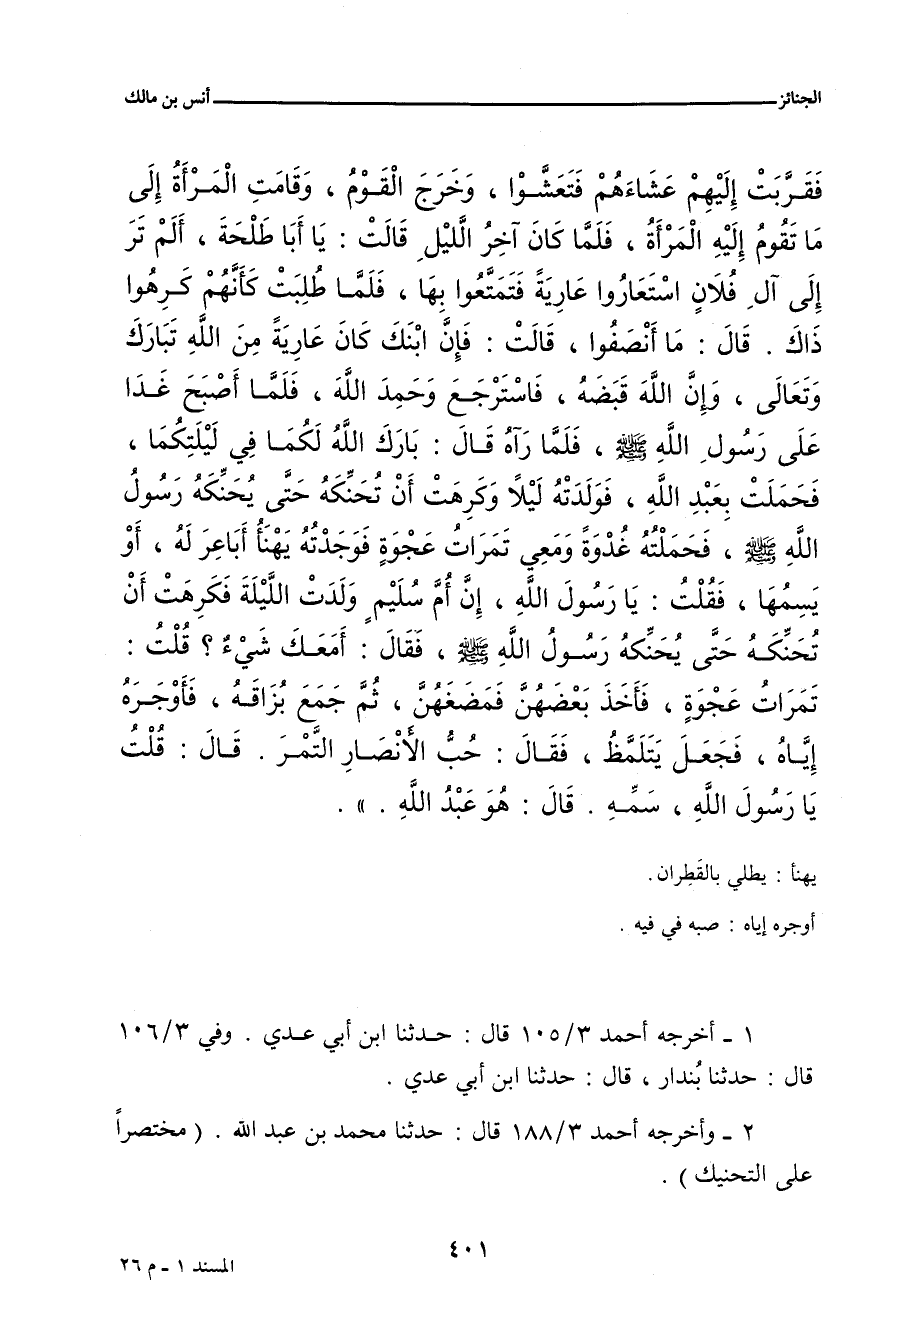 الجنائز ــــــــــــــــــــــــ أنس بن مالك
فَقَرَّبَتْ إِلَيْهِمْ عَشَاءَهُمْ فَتَعَشَّوْا ، وَخَرَجَ الْقَوْمُ ، وَقَامَتِ الْمَرْأَةُ إِلَى
مَا تَقُومُ إِلَيْهِ الْمَرْأَةُ ، فَلَمَّا كَانَ آخِرُ الَّليْلِ قَالَتْ : يَا أَبَا طَلْحَةَ ، أَلَمْ تَرَ
إِلَى آلِ فُلَانٍ اسْتَعَارُوا عَارِيَةً فَتَمَتَّعُوا بِهَا ، فَلَمَّا طُلِبَتْ كَأَنَّهُمْ كَرِهُوا
ذَاكَ . قَالَ : مَا أَنْصَفُوا ، قَالَتْ : فَإِنَّ ابْنَكَ كَانَ عَارِيَةً مِنَ اللَّهِ تَبَارَكَ
وَتَعَالَى ، وَإِنَّ اللَّهَ قَبَضَهُ ، فَاسْتَرْجَعَ وَحَمِدَ اللَّهَ ، فَلَمَّا أَصْبَحَ غَدَا
عَلَى رَسُولِ اللَّهِ ﷺ ، فَلَمَّا رَآهُ قَالَ : بَارَكَ اللَّهُ لَكُمَا فِي لَيْلَتِكُمَا ،
فَحَمَلَتْ بِعَبْدِ اللَّهِ ، فَوَلَدَتْهُ لَيْلًا وَكَرِهَتْ أَنْ تُحَنِّكَهُ حَتَّى يُحَنِّكَهُ رَسُولُ
اللَّهِ ﷺ ، فَحَمَلْتُهُ غُدْوَةً وَمَعِي تَمَرَاتُ عَجْوَةٍ فَوَجَدْتُهُ يَهْنَأُ أَبَاعِرَ لَهُ ، أَوْ
يَسِمُهَا ، فَقُلْتُ : يَا رَسُولَ اللَّهِ ، إِنَّ أُمَّ سُلَيْمٍ وَلَدَتْ اللَّيْلَةَ فَكَرِهَتْ أَنْ
تُحَنِّكَهُ حَتَّى يُحَنِّكَهُ رَسُولُ اللَّهِ ﷺ ، فَقَالَ : أَمَعَكَ شَيْءٌ ؟ قُلْتُ :
تَمَرَاتُ عَجْوَةٍ ، فَأَخَذَ بَعْضَهُنَّ فَمَضَغَهُنَّ ، ثُمَّ جَمَعَ بُزَاقَهُ ، فَأَوْجَرَهُ
إِيَّاهُ ، فَجَعَلَ يَتَلَمَّظُ ، فَقَالَ : حُبُّ الْأَنْصَارِ التَّمْرَ . قَالَ : قُلْتُ
يَا رَسُولَ اللَّهِ ، سَمِّهِ . قَالَ : هُوَ عَبْدُ اللَّهِ . » .
يهنأ : يطلي بالقَطِران .
أوجره إياه : صبه في فيه .
١ ـ أخرجه أحمد ١٠٥/٣ قال : حدثنا ابن أبي عدي . وفي ١٠٦/٣
قال : حدثنا بُندار ، قال : حدثنا ابن أبي عدي .
٢ ـ وأخرجه أحمد ١٨٨/٣ قال : حدثنا محمد بن عبد الله . ( مختصراً
على التحنيك ) .
٤٠١
المسند ١ ـ م ٢٦